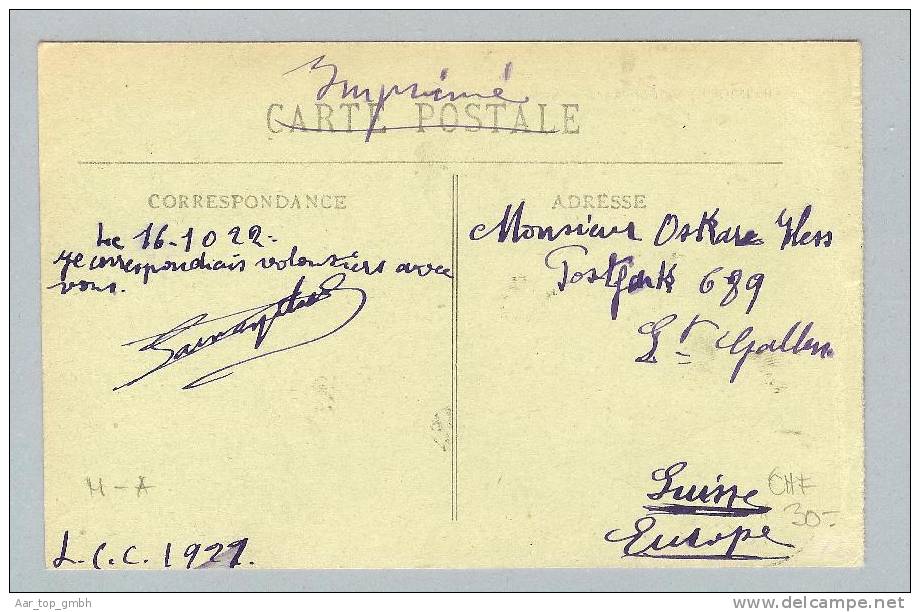 Imprimé
CARTE POSTALE
CORRESPONDANCE
Le 16-10 22-
Je correspondrais volontiers avec
vous.
H-A
L.C.C. 1921.
ADRESSE
Monsieur Oskare Hess
Postfark 689
St Gallen
Suisse
Europe
CHF
30-
Aar_top_gmbh
http://www.delcampe.net